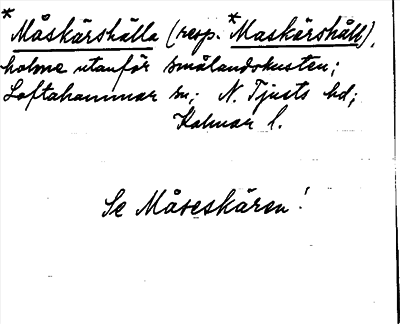 *Måskärshälla (resp. *Maskärshäll),
holme utanför smålandskusten;
Loftahammar sn; N. Tjusts hd;
Kalmar l.
Se Måseskären!